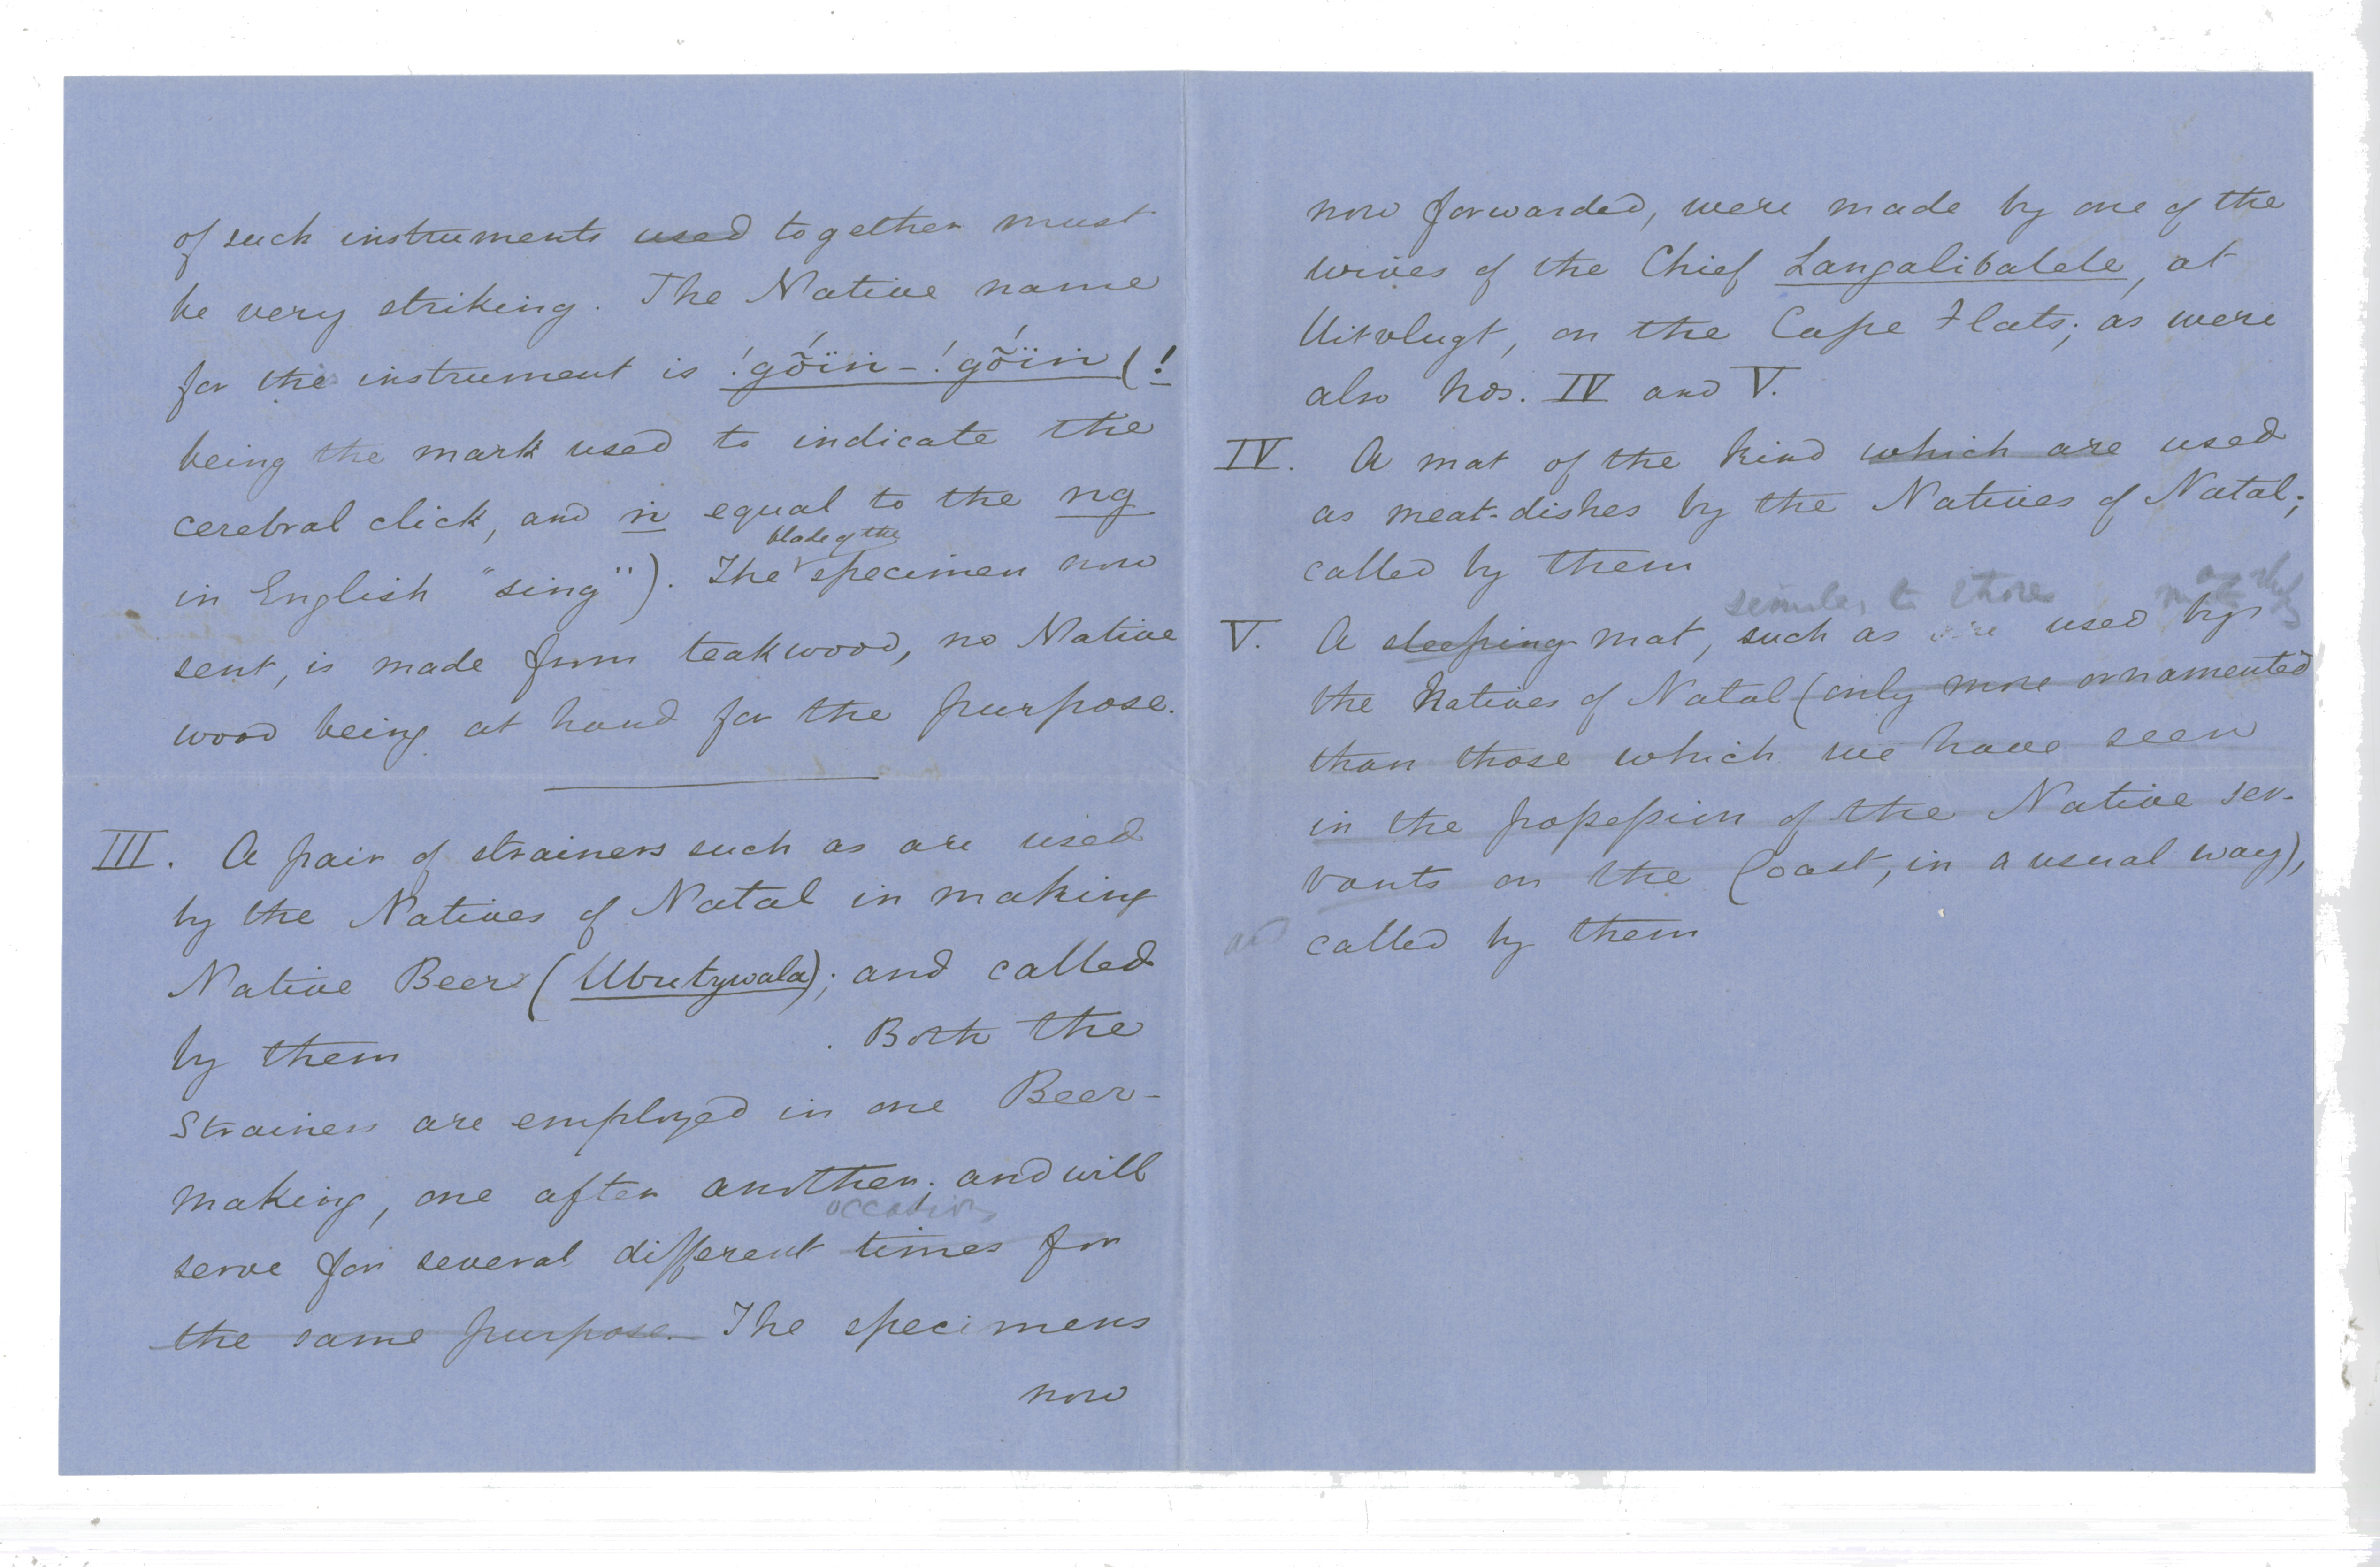 of such instruments used together must
be very striking. The Native name
for the instrument is !góïṅ-!góïṅ (!
being the mark used to indicate the
cerebral click, and ṅ equal to the ng
blade of the
in English "sing"). The specimen now
sent, is made from teakwood, no Native
wood being at hand for the purpose.
III. A pair of strainers such as are used
by the Natives of Natal in making
Native Beer (Ubutywala); and called
by them . Both the
Strainers are employed in one Beer-
making, one after another; and will
occasions
serve for several different times for
the same purpose. The specimens
now
now forwarded, were made by one of the
wives of the Chief Langalibalele, at
Uitvlugt, on the Cape Flats; as were
also nos. IV and V.
IV. A mat of the kind which are used
as meat-dishes by the Natives of Natal;
called by them
similar to those
V. A sleeping mat, such as are used by
the Natives of Natal (only more ornamented
than those which we have seen
in the possession of the Native ser-
vants on the Coast, in a usual way),
and called by them